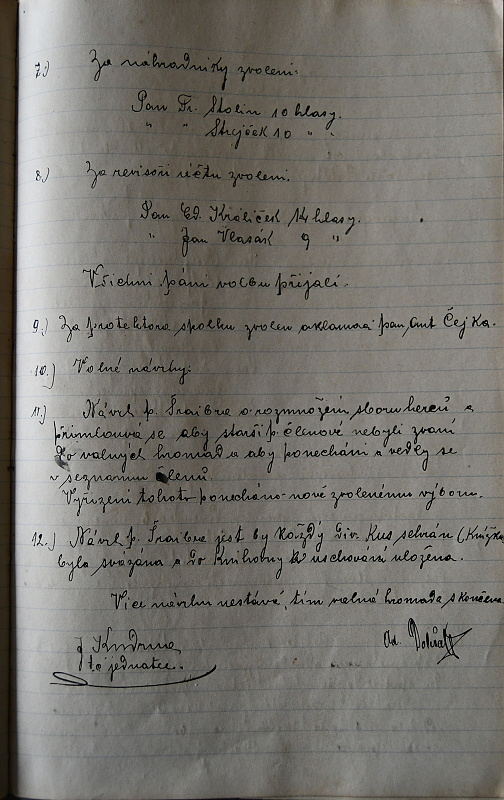 7.) Za náhradníky zvoleni:
Pan Fr. Stolin 10 hlasy.
" " Strejček 10 " "
8.) Za revisoři účtu zvoleni.
Pan Ed. Králiček 14 hlasy.
" Jan Vlasák 9 "
Všichni páni volbu přijali.
9.) Za protektora spolku zvolen aklamaci pan Ant Čejka.
10.) Volné návrhy:
11.) Návrh p. Šraibra o rozmnožení sboru herců a
přimlouvá se aby starší p. členové nebyli zvaní
do valných hromad a aby ponecháni a vedly se
v seznamu členů.
Vyřízení tohoto ponecháno nově zvolenému výboru.
12.) Návrh p. Šraibra jest by každý div. kus sehrán (Knížka
byla svázána a do knihovny k uschování uložena.
Více návrhu nestává, tím valná hromada skončena
J Kudrna
t.č jednatel.